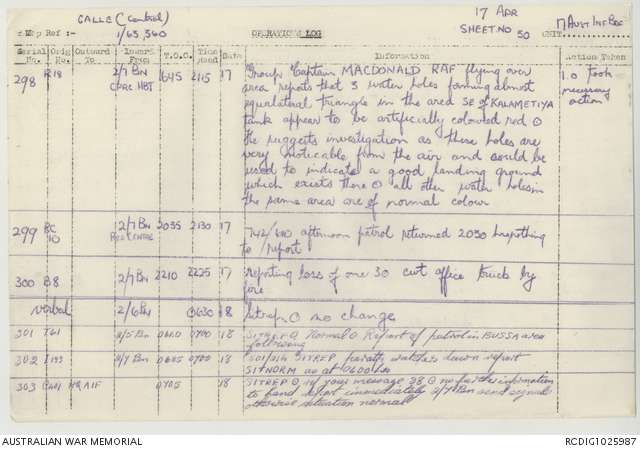 GALLE (Central)
17 APR
Map Ref :- 1/63,360
OPERATIONS LOG
SHEET NO 50
UNIT 17 AUST INF BDE
Serial No. Orig No. Outward To Inward From T.O.O. Time Rcvd Date Information Action Taken
298 R18 2/7 BN 1645 2115 17 Group Captain MACDONALD RAF flying over I.O. took
area reports that 3 water holes forming almost necessary
equilateral triangle in the area SE of KALAMETIYA action
tank appear to be artificially coloured red O
He suggests investigation as these holes are
very noticable from the air and could be
used to indicate a good landing ground
which exists there O all other water holes in
the same area are of normal colour
299 BC 10 2/7 Bn 2035 2130 17 afternoon patrol returned 2030 hrs nothing
to report
300 B8 2/7 Bn 2210 2225 17 reporting loss of one 30 cwt office truck by
fire
verbal 2/6 Bn 0630 18 Sitrep O no change
301 I61 2/5 Bn 0640 0700 18 SITREP O Normal O Report of patrol in BUSSA area
following
302 I133 2/7 Bn 0645 0700 18 SITREP, watches dawn report
SITNORM as at 0600 hrs
303 HQ AIF 0705 18 SITREP O your message 28 O no further information
to hand report immediately 2/7 Bn send signals
otherwise situation normal
AUSTRALIAN WAR MEMORIAL
RCDIG1025987